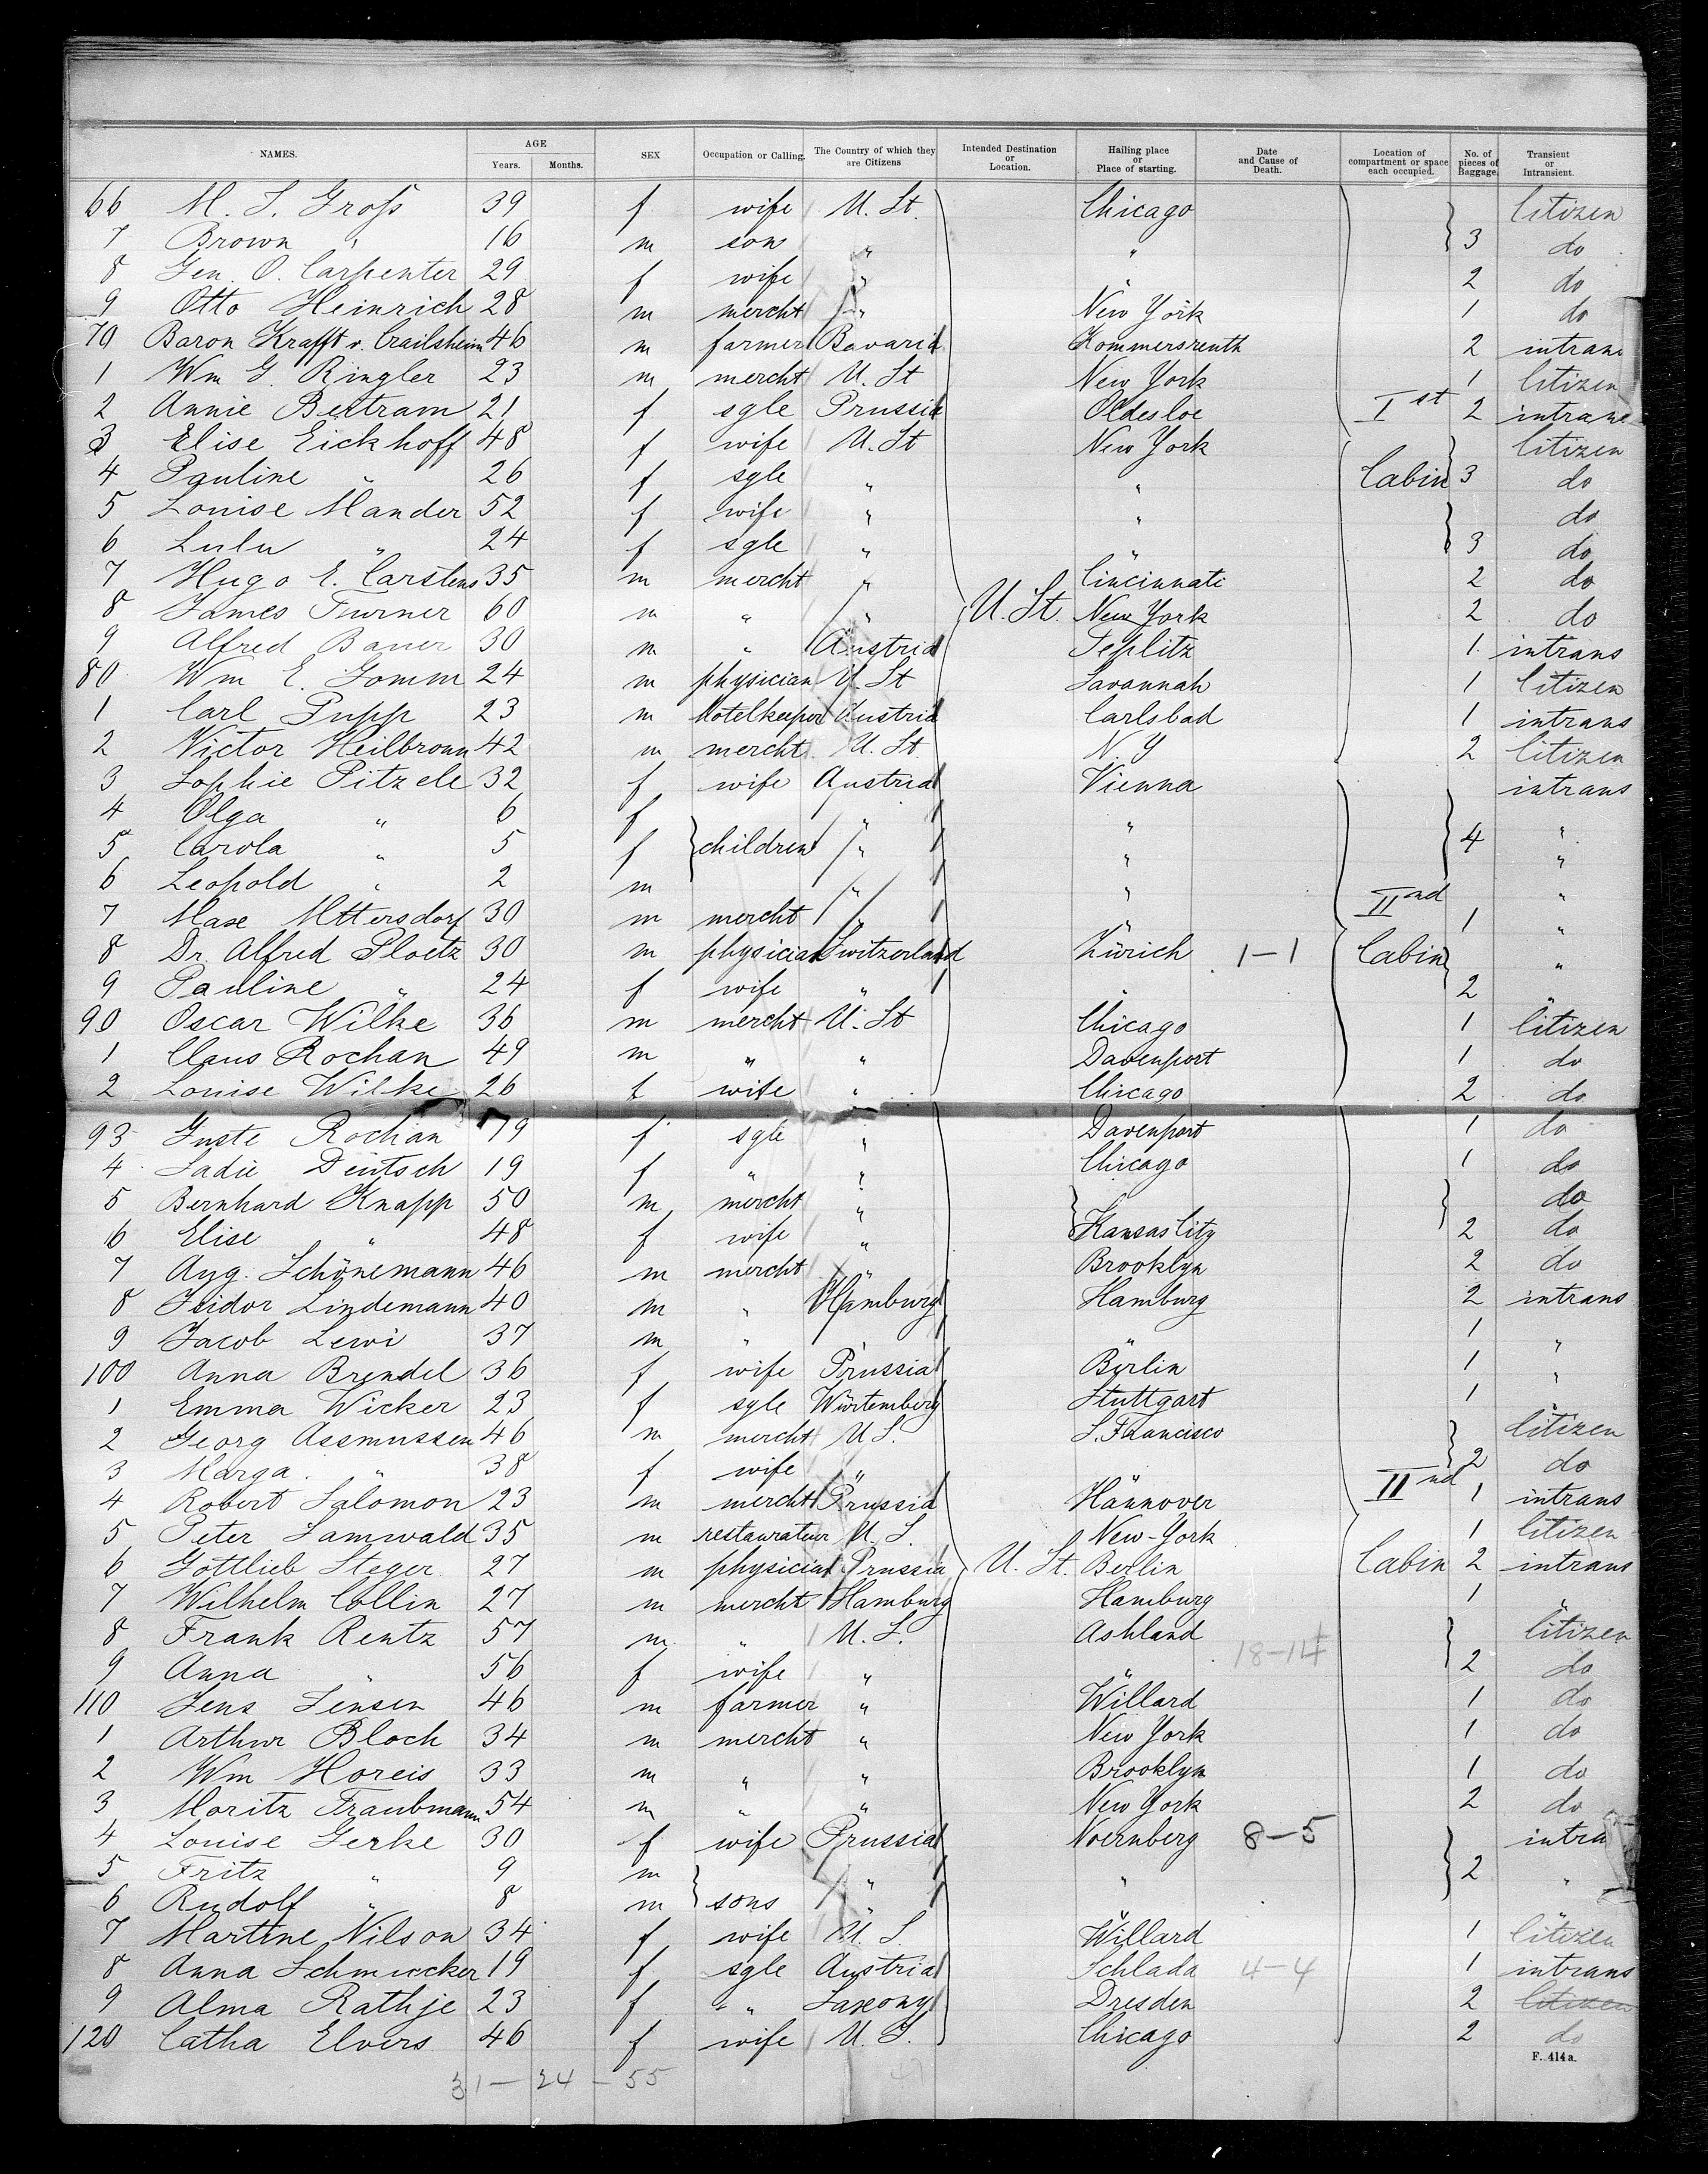 NAMES. AGE Years. Months. SEX Occupation or Calling. The Country of which they are Citizens Intended Destination or Location. Hailing place or Place of starting. Date and Cause of Death. Location of compartment or space each occupied. No. of pieces of Baggage. Transient or Intransient.
66 M. S. Groß 39 f wife U. St. Chicago Citizen
7 Brown " 16 m son " " 3 do
8 Gen. O. Carpenter 29 f wife " " 2 do
9 Otto Heinrich 28 m mercht " New York 1 do
70 Baron Krafft v. Crailsheim 46 m farmer Bavaria Kommersreuth 2 intrans
1 Wm G. Ringler 23 m mercht U. St New York 1 Citizen
2 Annie Bertram 21 f sgle Prussia Oldesloe Ist 2 intrans
3 Elise Eickhoff 48 f wife U. St New York Citizen
4 Pauline " 26 f sgle " " Cabin 3 do
5 Louise Mander 52 f wife " " do
6 Lulu " 24 f sgle " " 3 do
7 Hugo E. Carstens 35 m mercht " Cincinnati 2 do
8 James Turner 60 m " " U. St. New York 2 do
9 Alfred Bauer 30 m " Austria Teplitz 1 intrans
80 Wm E. Gomm 24 m physician U. St Savannah 1 Citizen
1 Carl Pupp 23 m Hotelkeeper Austria Carlsbad 1 intrans
2 Victor Heilbronn 42 m mercht U. St N. Y 2 Citizen
3 Sophie Pitzele 32 f wife Austria Vienna intrans
4 Olga " 6 f " "
5 Carola " 5 f children " " 4 "
6 Leopold " 2 m " " "
7 Max Mttersdorf 30 m mercht " " IInd 1 "
8 Dr. Alfred Ploetz 30 m physician Switzerland Zürich 1-1 Cabin "
9 Pauline " 24 f wife " " 2 "
90 Oscar Wilke 36 m mercht U. St Chicago 1 Citizen
1 Claus Rochan 49 m " " Davenport 1 do
2 Louise Wilke 26 f wife " Chicago 2 do
93 Guste Rochan 19 f sgle " Davenport 1 do
4 Sadie Deutsch 19 f " " Chicago 1 do
5 Bernhard Knapp 50 m mercht " do
6 Elise " 48 f wife " Kansas City 2 do
7 Aug. Schönemann 46 m mercht " Brooklyn 2 do
8 Isidor Lindemann 40 m " Hamburg Hamburg 2 intrans
9 Jacob Lewi 37 m " " " 1 "
100 Anna Brendel 36 f wife Prussia Berlin 1 "
1 Emma Wicker 23 f sgle Würtemberg Stuttgart 1 "
2 Georg Assmussen 46 m mercht U S. S. Francisco Citizen
3 Marga. " 38 f wife " " 2 do
4 Robert Salomon 23 m mercht Prussia Hannover IInd 1 intrans
5 Peter Samwald 35 m restaurateur U. S. New-York 1 Citizen
6 Gottlieb Steger 27 m physician Prussia U. St. Berlin Cabin 2 intrans
7 Wilhelm Collin 27 m mercht Hamburg Hamburg 1 "
8 Frank Rentz 57 m " U. S. Ashland 18-14 Citizen
9 Anna " 56 f wife " " 2 do
110 Jens Jensen 46 m farmer " Willard 1 do
1 Arthur Bloch 34 m mercht " New York 1 do
2 Wm Horeis 33 m " " Brooklyn 1 do
3 Moritz Traubmann 54 m " " New York 2 do
4 Louise Gerke 30 f wife Prussia Noernberg 8-5 intra
5 Fritz " 9 m " " 2 "
6 Rudolf " 8 m sons " " "
7 Martine Nilson 34 f wife U. S. Willard 1 Citizen
8 Anna Schmucker 19 f sgle Austria Schlada 4-4 1 intrans
9 Alma Rathje 23 f " Saxony Dresden 2 Citizen
120 Catha Elvers 46 f wife U. S. Chicago 2 do
F. 414a.
31 - 24 - 55